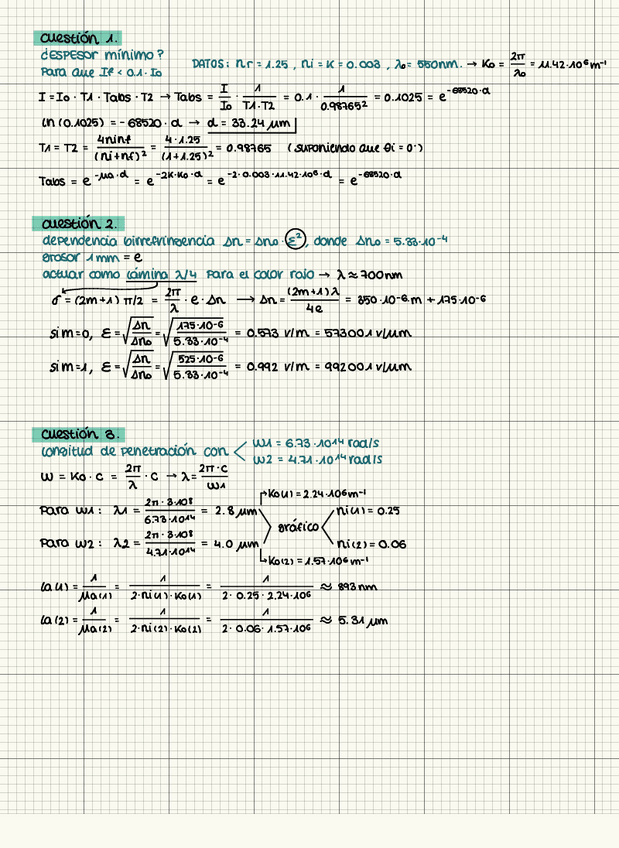 cuestión 1.
¿espesor mínimo?
para que If < 0.1 · I0
DATOS: nr = 1.25 , ni = K = 0.003 , λ0 = 550nm. → K0 = 2π/λ0 = 11.42·10⁶ m⁻¹
I = I0 · T1 · Tabs · T2 → Tabs = I/I0 · 1/(T1·T2) = 0.1 · 1/0.98765² = 0.1025 = e^(-68520·d)
ln(0.1025) = -68520 · d → d = 33.24 μm
T1 = T2 = 4ninf/(ni+nf)² = 4·1.25/(1+1.25)² = 0.98765 (suponiendo que θi = 0°)
Tabs = e^(-μa·d) = e^(-2K·K0·d) = e^(-2·0.003·11.42·10⁶·d) = e^(-68520·d)
cuestión 2.
dependencia birrefringencia Δn = Δn0 · ε², donde Δn0 = 5.33·10⁻⁴
grosor 1mm = e
actuar como lámina λ/4 para el color rojo → λ ≈ 700nm
σ = (2m+1) π/2 = 2π/λ · e · Δn → Δn = (2m+1)λ/4e = 350·10⁻⁶·m + 175·10⁻⁶
si m=0, ε = √(Δn/Δn0) = √(175·10⁻⁶/5.33·10⁻⁴) = 0.573 v/m = 573001 v/μm
si m=1, ε = √(Δn/Δn0) = √(525·10⁻⁶/5.33·10⁻⁴) = 0.992 v/m = 992001 v/μm
cuestión 3.
longitud de penetración con
w1 = 6.73·10¹⁴ rad/s
w2 = 4.71·10¹⁴ rad/s
w = K0 · c = 2π/λ · c → λ = 2π·c/w1
K0(1) = 2.24·10⁶ m⁻¹
Para w1: λ1 = 2π·3·10⁸/6.73·10¹⁴ = 2.8 μm
gráfico
ni(1) = 0.25
Para w2: λ2 = 2π·3·10⁸/4.71·10¹⁴ = 4.0 μm
ni(2) = 0.06
K0(2) = 1.57·10⁶ m⁻¹
la(1) = 1/μa(1) = 1/(2·ni(1)·K0(1)) = 1/(2·0.25·2.24·10⁶) ≈ 893nm
la(2) = 1/μa(2) = 1/(2·ni(2)·K0(2)) = 1/(2·0.06·1.57·10⁶) ≈ 5.31 μm